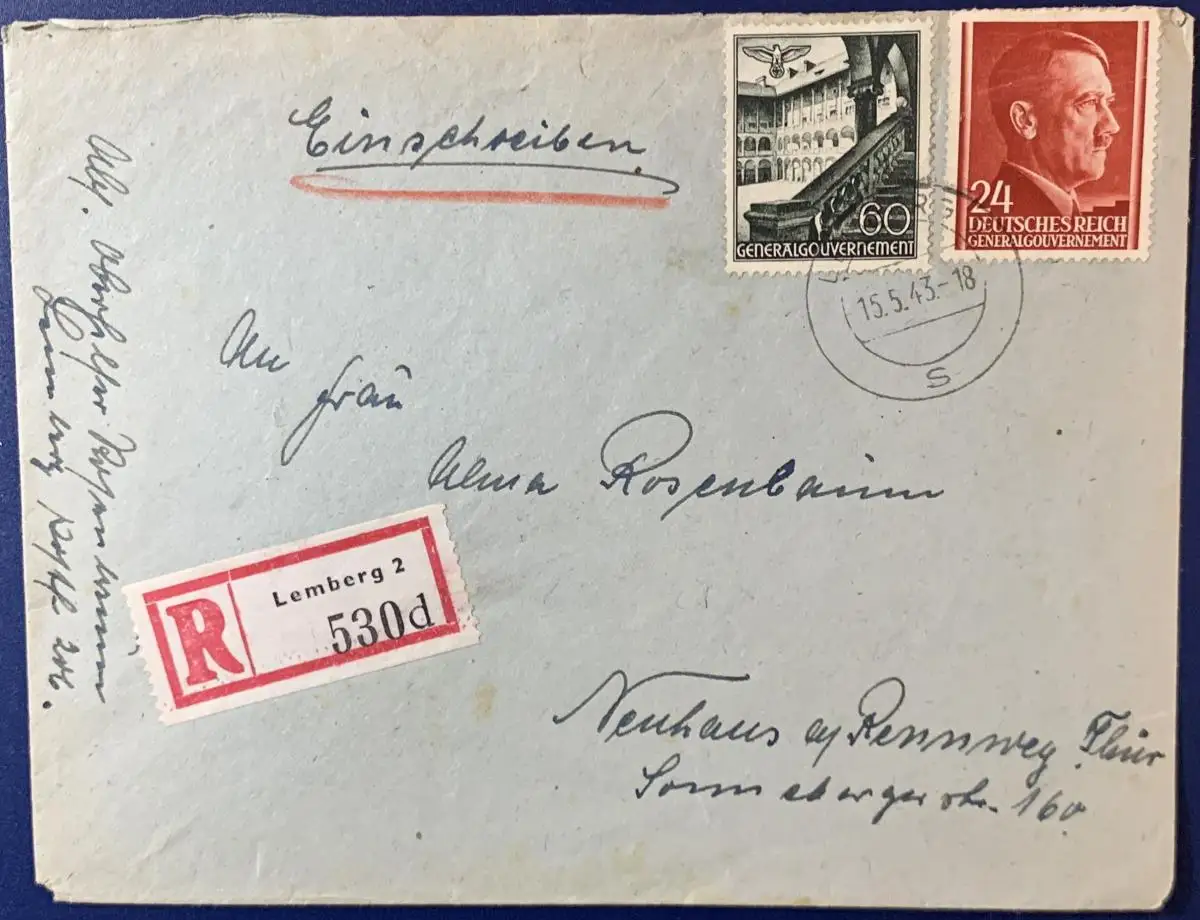 Einschreiben
60
GENERALGOUVERNEMENT
24
DEUTSCHES REICH
GENERALGOUVERNEMENT
15.5.43.-18
s
An
Frau
Alma Rosenbaum
R
Lemberg 2
530d
Neuhaus a/Rennweg Thür
Sonnebergerstr. 160
Abs. Rosenbaum
Lemberg 206.